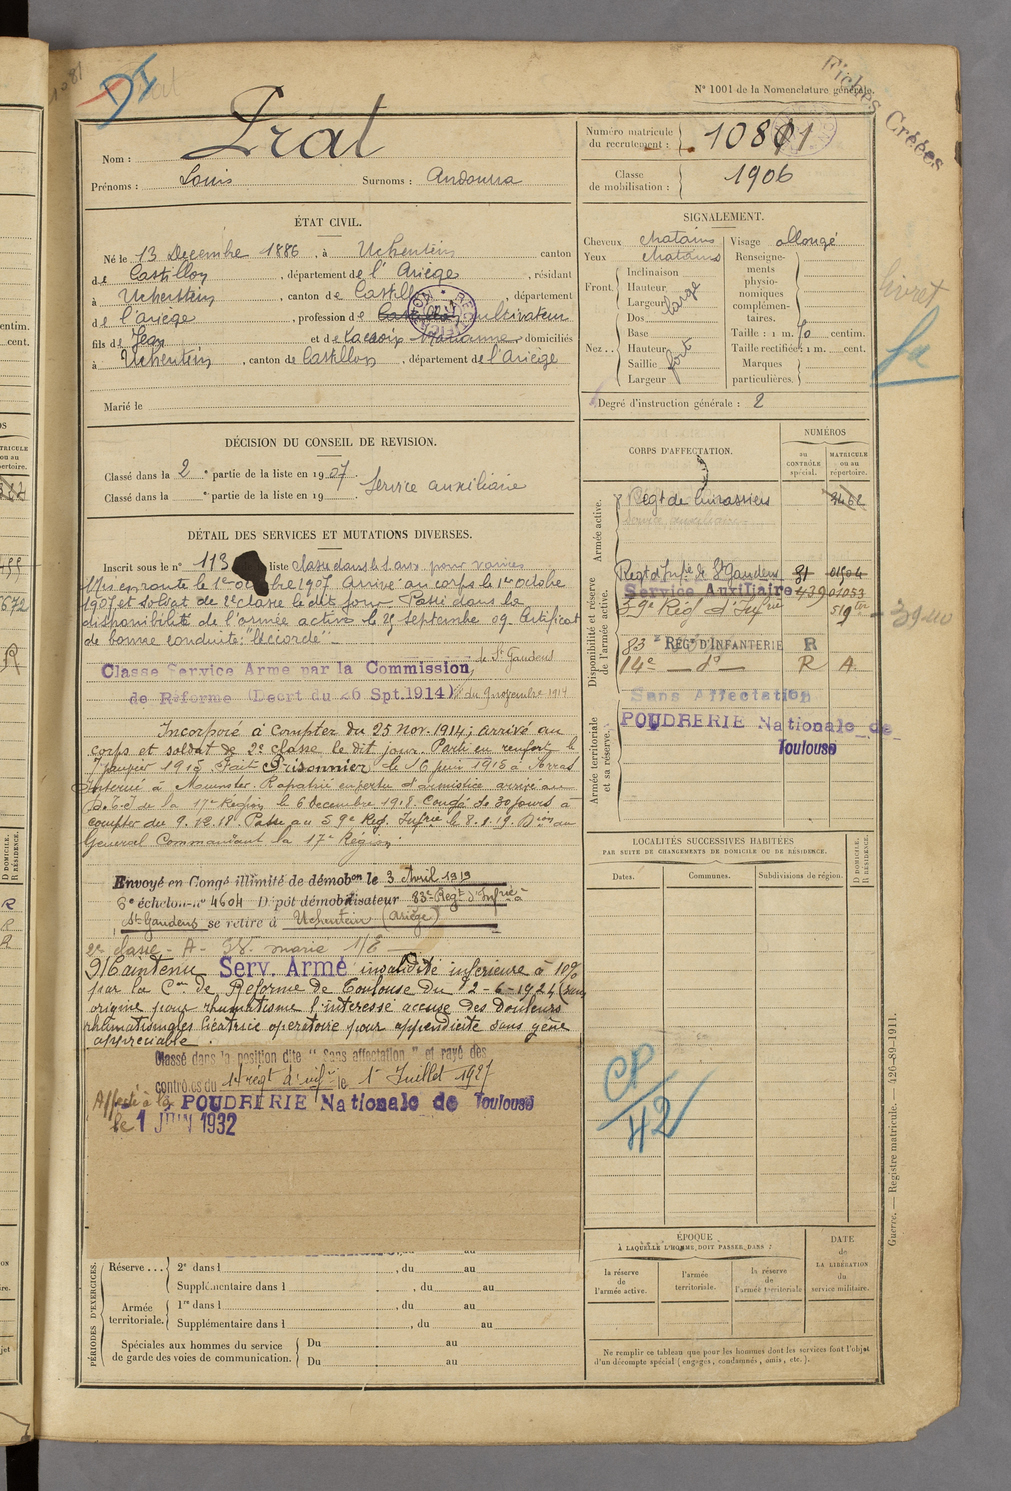 1081
DI
Fiches Créées
N° 1001 de la Nomenclature générale.
Nom : Prat
Prénoms : Louis Surnoms : Andousra
Numéro matricule du recrutement : 1081
Classe de mobilisation : 1906
ÉTAT CIVIL.
Né le 13 Decembre 1886, à Uchentein canton
de Castillon, département de l'Ariège, résidant
à Uchentein, canton de Castillon, département
d e l'ariège, profession de cultivateur
fils de Jean et de Lacroix Marianne domiciliés
à Uchentein, canton de Castillon, département de l'Ariège
Marié le
SIGNALEMENT.
Cheveux chatains Visage allongé
Yeux chatains
Renseignements physionomiques complémentaires.
Front. Inclinaison
Hauteur
Largeur large
Nez.. Dos
Base
Hauteur fort
Saillie
Largeur
Taille : 1 m. 70 centim.
Taille rectifiée : 1 m. cent.
Marques particulières.
Degré d'instruction générale : 2
livret
fa
DÉCISION DU CONSEIL DE REVISION.
Classé dans la 2e partie de la liste en 1907. Service auxiliaire
Classé dans la e partie de la liste en 19
DÉTAIL DES SERVICES ET MUTATIONS DIVERSES.
Inscrit sous le n° 113 liste classé dans le s. aux. pour varices
Mis en route le 1er octobre 1907. Arrivé au corps le 1er octobre
1907 et soldat de 2e classe le dit jour. Passé dans la
disponibilité de l'armée active le 25 septembre 09. Certificat
de bonne conduite: "accordé"
Classe Service Armé par la Commission de St Gaudens
de Réforme (Decrt du 26 Spt.1914) du 9 novembre 1914
Incorporé à compter du 25 Nov. 1914; arrivé au
corps et soldat de 2e classe le dit jour. Parti en renfort le
7 janvier 1915. Fait Prisonnier le 16 juin 1915 à Arras
Interné à Munster. Rapatrié en vertu d'armistice arrivé au
de la 17e Région le 6 decembre 1918. Congé de 30 jours à
compter du 9.12.18. Passe au 59e Reg. Infrie le 8.1.19. Don du
Général Commandant la 17e Région.
Envoyé en Congé illimité de démobon le 3 Avril 1919
3e échelon n° 4604 Dépôt démobilisateur 83e Regt d'Infrie à
St Gaudens se retire à Uchentein (Ariège)
2e classe - A -
Maintenu Serv. Armé invalidité inférieure à 10%
par la Con de Réforme de Toulouse du 12-6-1924 (sans
origine pour rhumatisme l'intéressé accuse des Douleurs
rhumatismales cicatrice operatoire pour appendicite sans gêne
appréciable.
Classé dans la position dite "Sans affectation" et rayé des
contrôles du 14e régt d'infie le 1er Juillet 1927
Affecté à la POUDRERIE Nationale de Toulouse
le 1 JUIN 1932
CORPS D'AFFECTATION.
NUMÉROS
au CONTRÔLE spécial.
MATRICULE ou au répertoire.
Armée active.
Régt de Cuirassiers 3462
Disponibilité et réserve de l'armée active.
Regt d'Infie de St Gaudens 31 01504
Service Auxiliaire 439 01053
59e Rég d'Infrie 519
83e REGt D'INFANTERIE R
14e — do — R A.
Armée territoriale et sa réserve.
Sans Affectation
POUDRERIE Nationale de
Toulouse
LOCALITÉS SUCCESSIVES HABITÉES
PAR SUITE DE CHANGEMENTS DE DOMICILE OU DE RÉSIDENCE.
Dates. Communes. Subdivisions de région. D DOMICILE. R RÉSIDENCE.
CP
42
PÉRIODES D'EXERCICES.
Réserve... 2e dans l , du au
Supplémentaire dans l , du au
Armée territoriale. 1re dans l , du au
Supplémentaire dans l , du au
Spéciales aux hommes du service de garde des voies de communication. Du au
Du au
ÉPOQUE
À LAQUELLE L'HOMME DOIT PASSER DANS :
la réserve de l'armée active.
l'armée territoriale.
la réserve de l'armée territoriale
DATE de LA LIBÉRATION du service militaire.
Ne remplir ce tableau que pour les hommes dont les services font l'objet
d'un décompte spécial (engagés, condamnés, omis, etc.).
Guerre. — Registre matricule. — 426-89-1911.